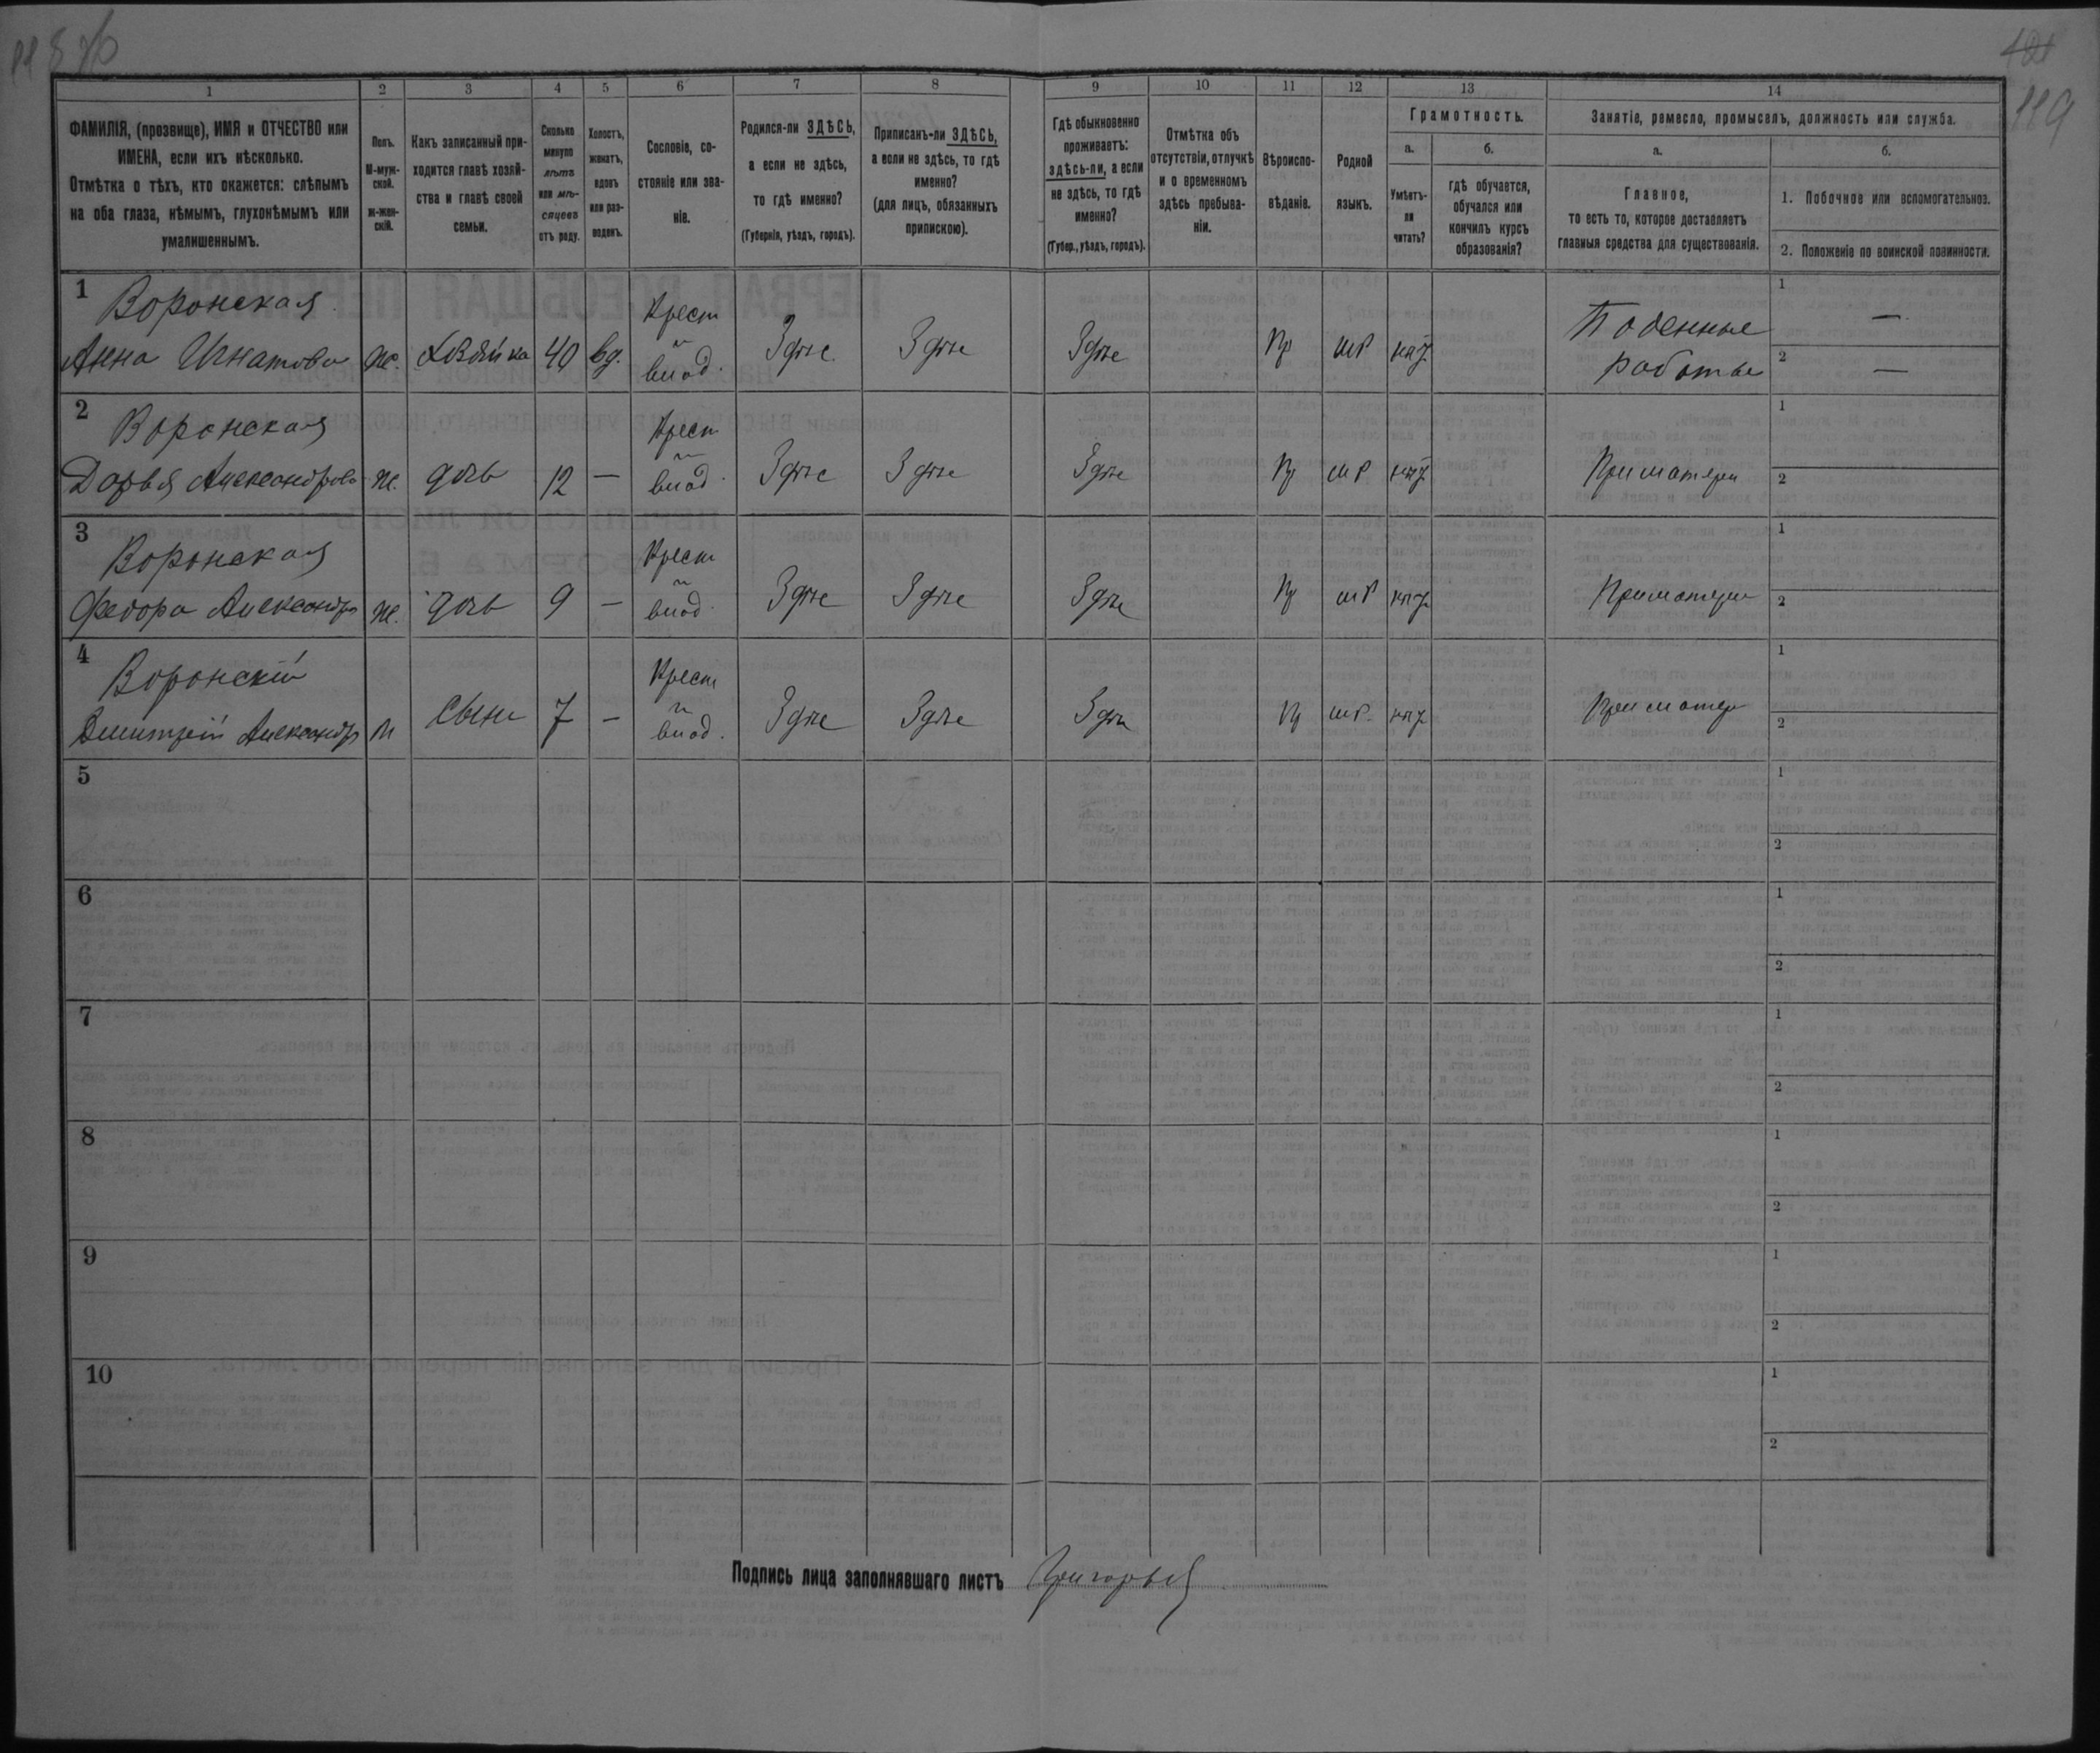 119
1 2 3 4 5 6 7 8 9 10 11 12 13 14
ФАМИЛІЯ, (прозвище), ИМЯ и ОТЧЕСТВО или ИМЕНА, если ихъ нѣсколько.
Отмѣтка о тѣхъ, кто окажется: слѣпымъ на оба глаза, нѣмымъ, глухонѣмымъ или умалишеннымъ.
Полъ.
М-муж-
ской.
ж-жен-
скій.
Какъ записанный при-
ходится главѣ хозяй-
ства и главѣ своей
семьи.
Сколько
минуло
лѣтъ
или мѣ-
сяцевъ
отъ роду.
Холостъ,
женатъ,
вдовъ
или раз-
веденъ.
Сословіе, со-
стояніе или зва-
ніе.
Родился-ли ЗДѢСЬ,
а если не здѣсь,
то гдѣ именно?
(Губернія, уѣздъ, городъ).
Приписанъ-ли ЗДѢСЬ,
а если не здѣсь, то гдѣ
именно?
(для лицъ, обязанныхъ
припискою).
Гдѣ обыкновенно
проживаетъ:
здѣсь-ли, а если
не здѣсь, то гдѣ
именно?
(Губер., уѣздъ, городъ).
Отмѣтка объ
отсутствіи, отлучкѣ
и о временномъ
здѣсь пребыва-
ніи.
Вѣроиспо-
вѣданіе.
Родной
языкъ.
Грамотность.
а.
Умѣетъ-
ли
читать?
б.
гдѣ обучается,
обучался или
кончилъ курсъ
образованія?
Занятіе, ремесло, промыселъ, должность или служба.
а.
Главное,
то есть то, которое доставляетъ
главныя средства для существованія.
б.
1. Побочное или вспомогательное.
2. Положеніе по воинской повинности.
1
Воронская
Анна Игнатова ж. хозяйка 40 вд. Крест
Здѣс Здѣс Здѣс Пр
Поденные
работы
1 —
2 —
2
Воронская
Дарья Александрова ж. дочь 12 — Крест
Здѣс Здѣс Здѣс Пр
При матери
1
2
3
Воронская
Федора Александр ж. дочь 9 — Крест
Здѣс Здѣс Здѣс Пр
При матери
1
2
4
Воронскій
Дмитрій Александр м сынъ 7 — Крест
Здѣс Здѣс Здѣс Пр
При матер
1
2
5
1
2
6
1
2
7
1
2
8
1
2
9
1
2
10
1
2
Подпись лица заполнявшаго листъ